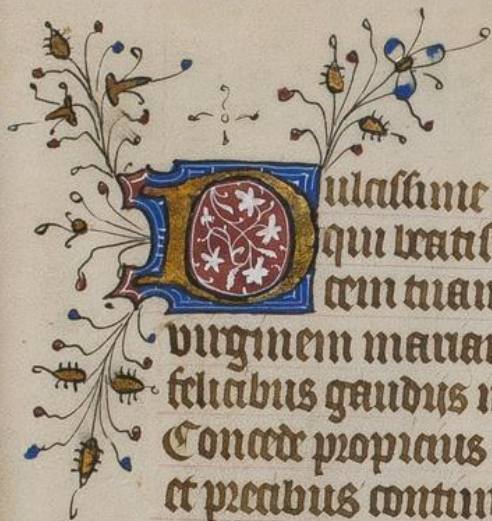 Dulcissime
qui beatis
cem tuam
virginem mariam
felicibus gaudijs
Concede propicius
et precibus contin